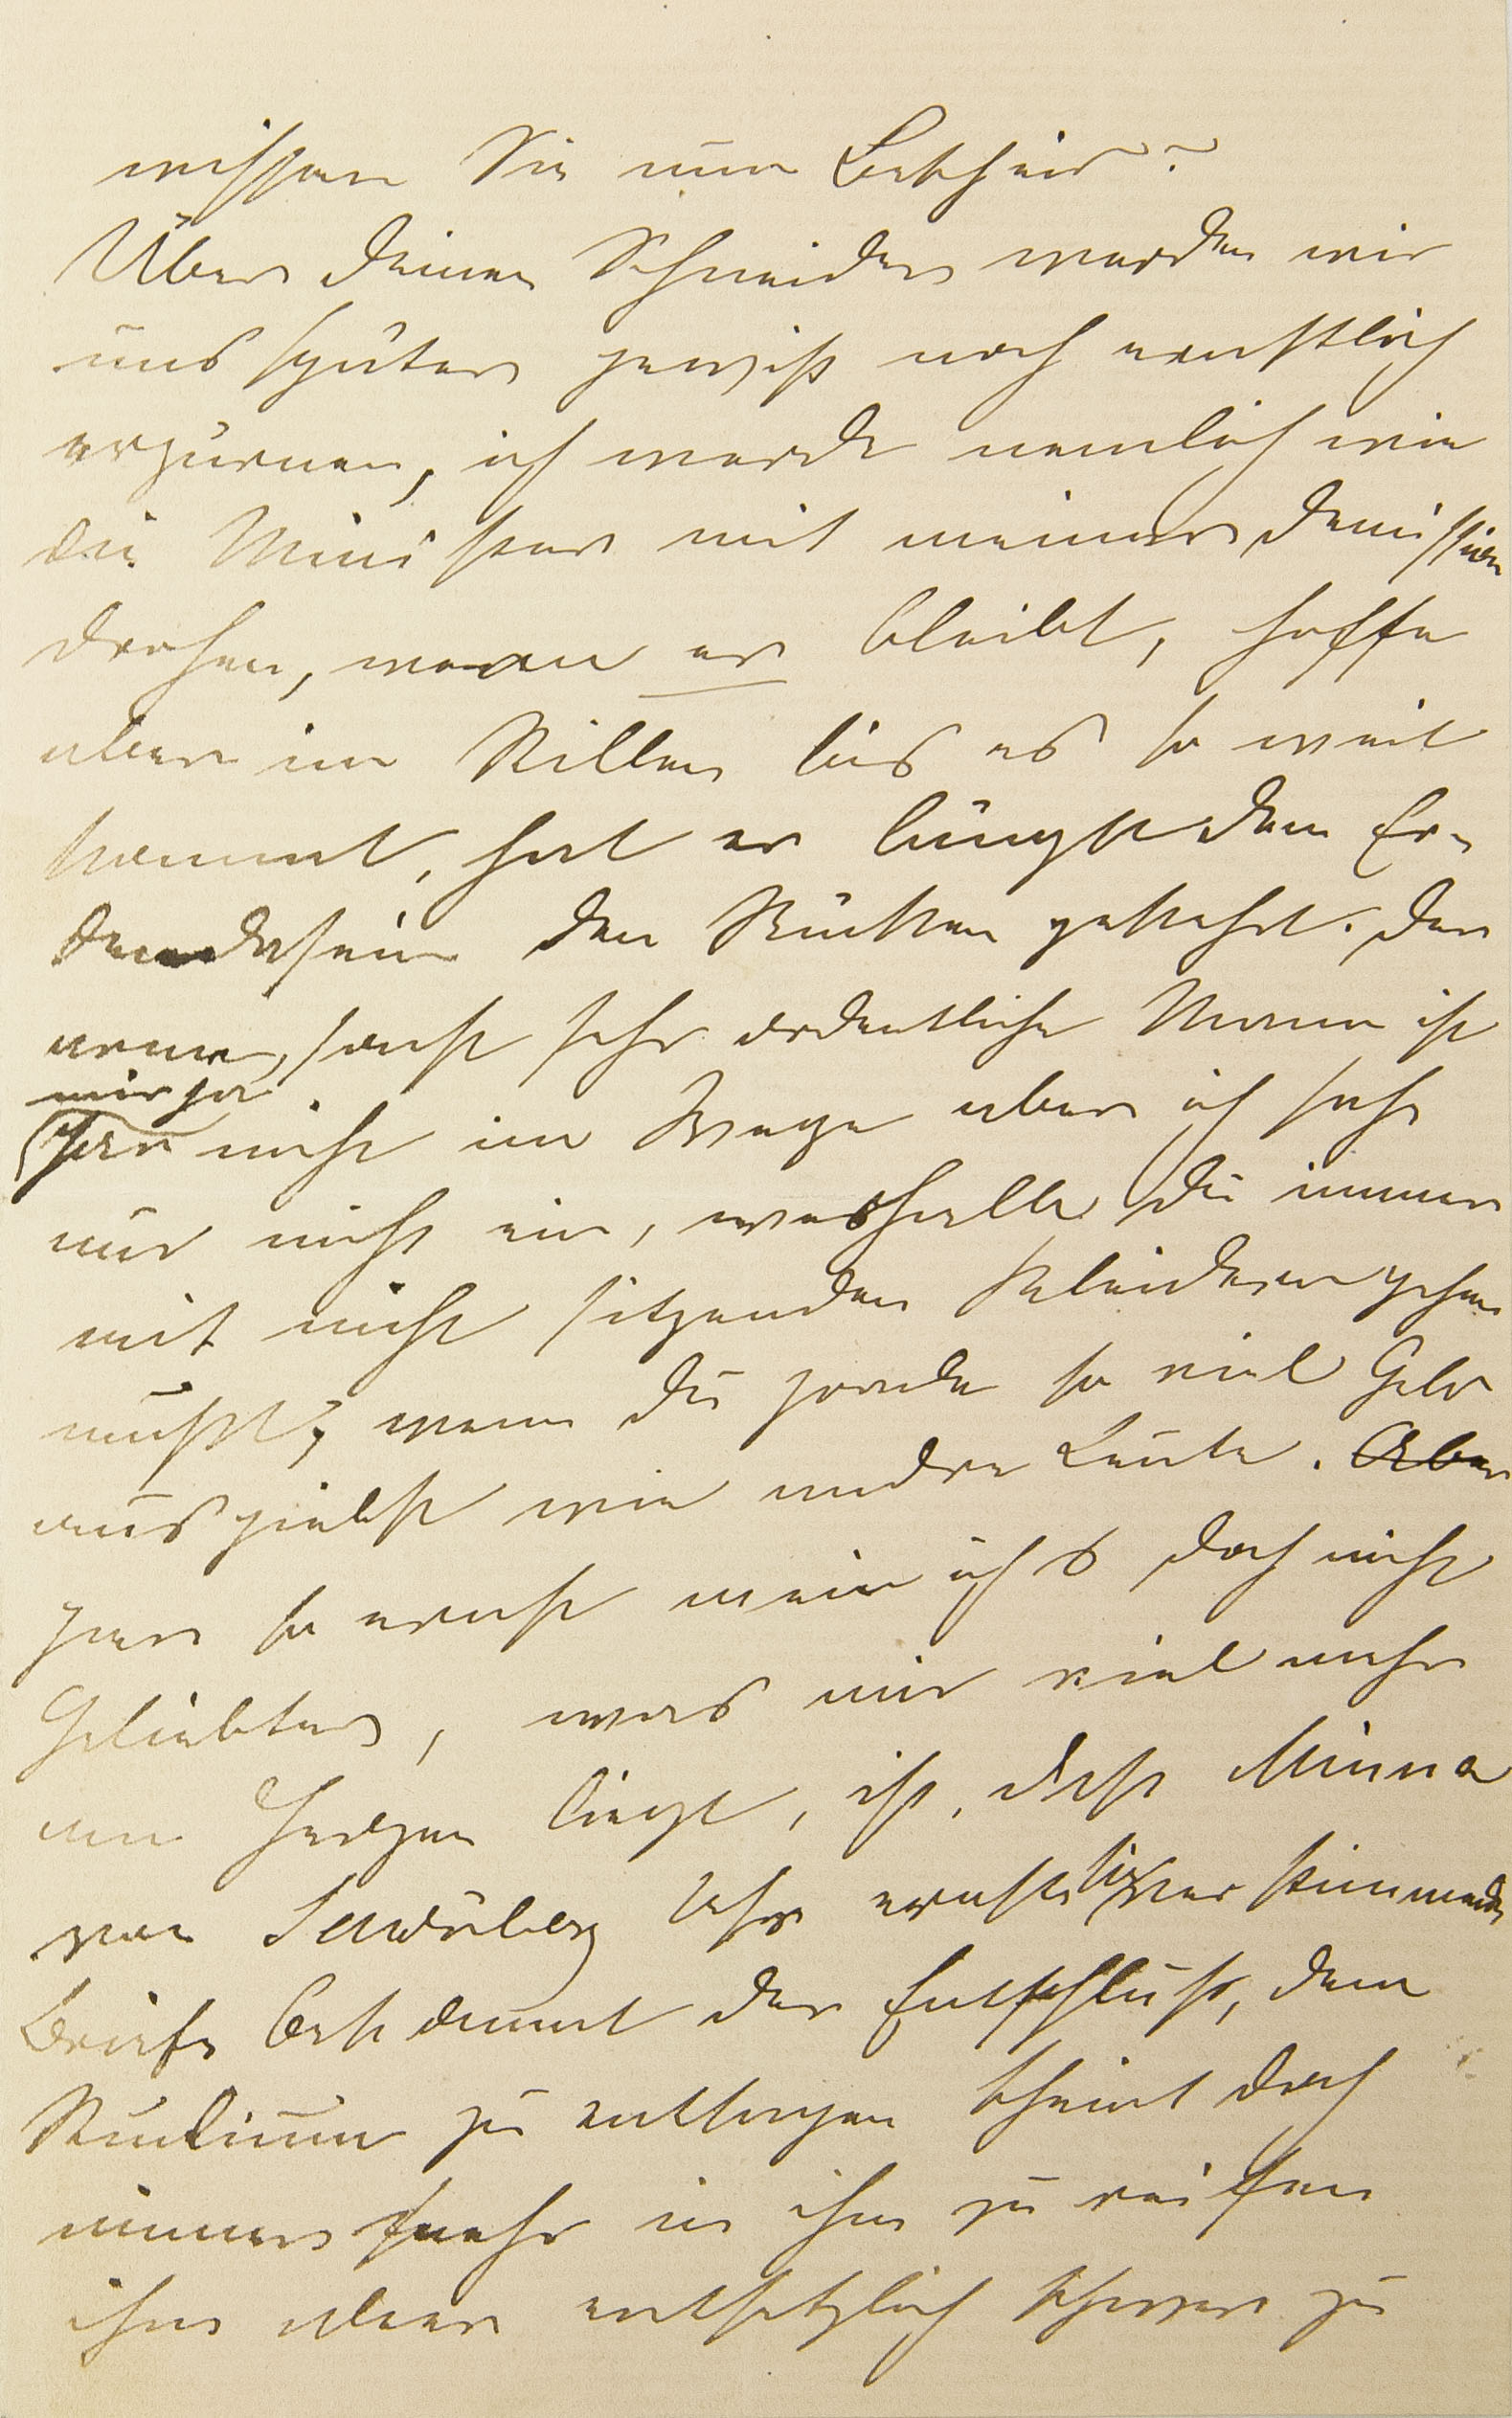 wissen Sie nun Bescheid?
Über deinen Schneider werden wir
uns später gewiß noch ernstlich
erzürnen, ich werde nemlich wie
die Minister mit meiner Demission
drohen, wenn er bleibt, hoffe
aber im Stillen bis es so weit
kommt, hat er längst dem Er-
dendasein den Rücken gekehrt. Der
arme, sonst sehr ordentliche Mann ist
mir ja
gar nicht im Wege aber ich sehe
nur nicht ein, weshalb Du immer
mit nicht sitzenden Kleidern gehen
mußt, wenn Du gerade so viel Geld
ausgiebst wie andre Leute. Aber
gar so ernst mein ichs doch nicht
Geliebter, was mir viel mehr
am Herzen liegt, ist, daß Minna
von Schönberg sehr ernste verstimmende
Briefe bekommt der Entschluß, dem
Studium zu entsagen scheint doch
immer mehr in ihm zu reifen
ihm aber entsetzlich schwer zu